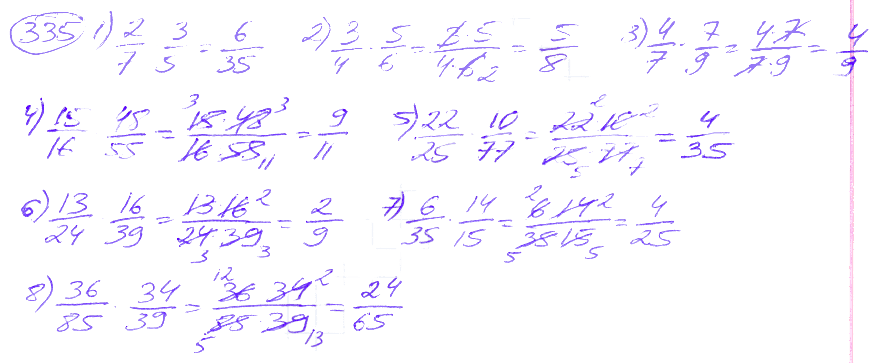 335 1) 2/7 · 3/5 = 6/35 2) 3/4 · 5/6 = 3·5/4·6 2 = 5/8 3) 4/7 · 7/9 = 4·7/7·9 = 4/9
4) 15/16 · 45/55 = 3 15·48 3/16·55 11 = 9/11 5) 22/25 · 10/77 = 22 2 10 2/25 5 · 77 7 = 4/35
6) 13/24 · 16/39 = 13 16 2/24 3 · 39 3 = 2/9 7) 6/35 · 14/15 = 2 6 14 2/35 5 15 5 = 4/25
8) 36/85 · 34/39 = 12 36 34 2/85 5 · 39 13 = 24/65